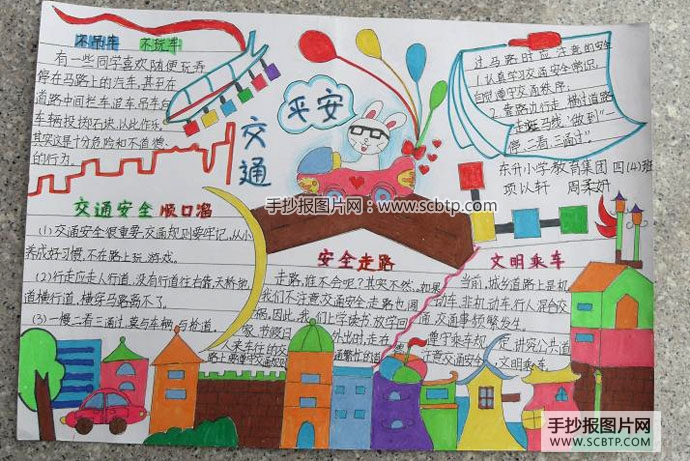 不吊车 不玩车
有一些同学喜欢随便玩弄
停在马路上的汽车,甚至在
道路中间拦车追车吊车向
车辆投掷石块,以此作乐。
其实这是十分危险和不道德
的行为。
交通
平安
过马路时应注意的安全
1.认真学习交通安全常识,
自觉遵守交通秩序;
2.靠路边行走,横过道路
走斑马线"做到"一
停二看三通过"
东升小学教育集团 四(4)班
项以轩 周柔妍
手抄报图片网:www.scbtp.com
交通安全 顺口溜
(1)交通安全很重要,交通规则要牢记,从小
养成好习惯,不在路上玩游戏。
(2)行走应走人行道,没有行道往右靠,天桥地
道横行道,横穿马路离不了。
(3)一慢二看三通过,莫与车辆去抢道。
安全走路
走路,谁不会呢?其实不然。如果
我们不注意交通安全,走路也闯
祸,因此,我们上学读书放学回
家 节假日 外出时,走在
人来车行的交 通繁忙的道
路上要遵守交通规
文明乘车
当前,城乡道路上是机
动车、非机动车、行人混合交
通,交通事频繁发生。
遵守乘车规 定,讲究公共道
德 注意交通安全 文明乘车。
手抄报图片网
WWW.SCBTP.COM